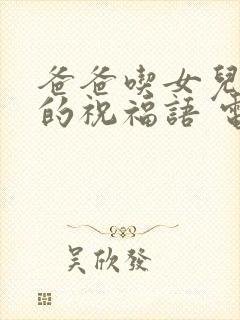 爸爸喫女兒
的祝福語
吴欣發